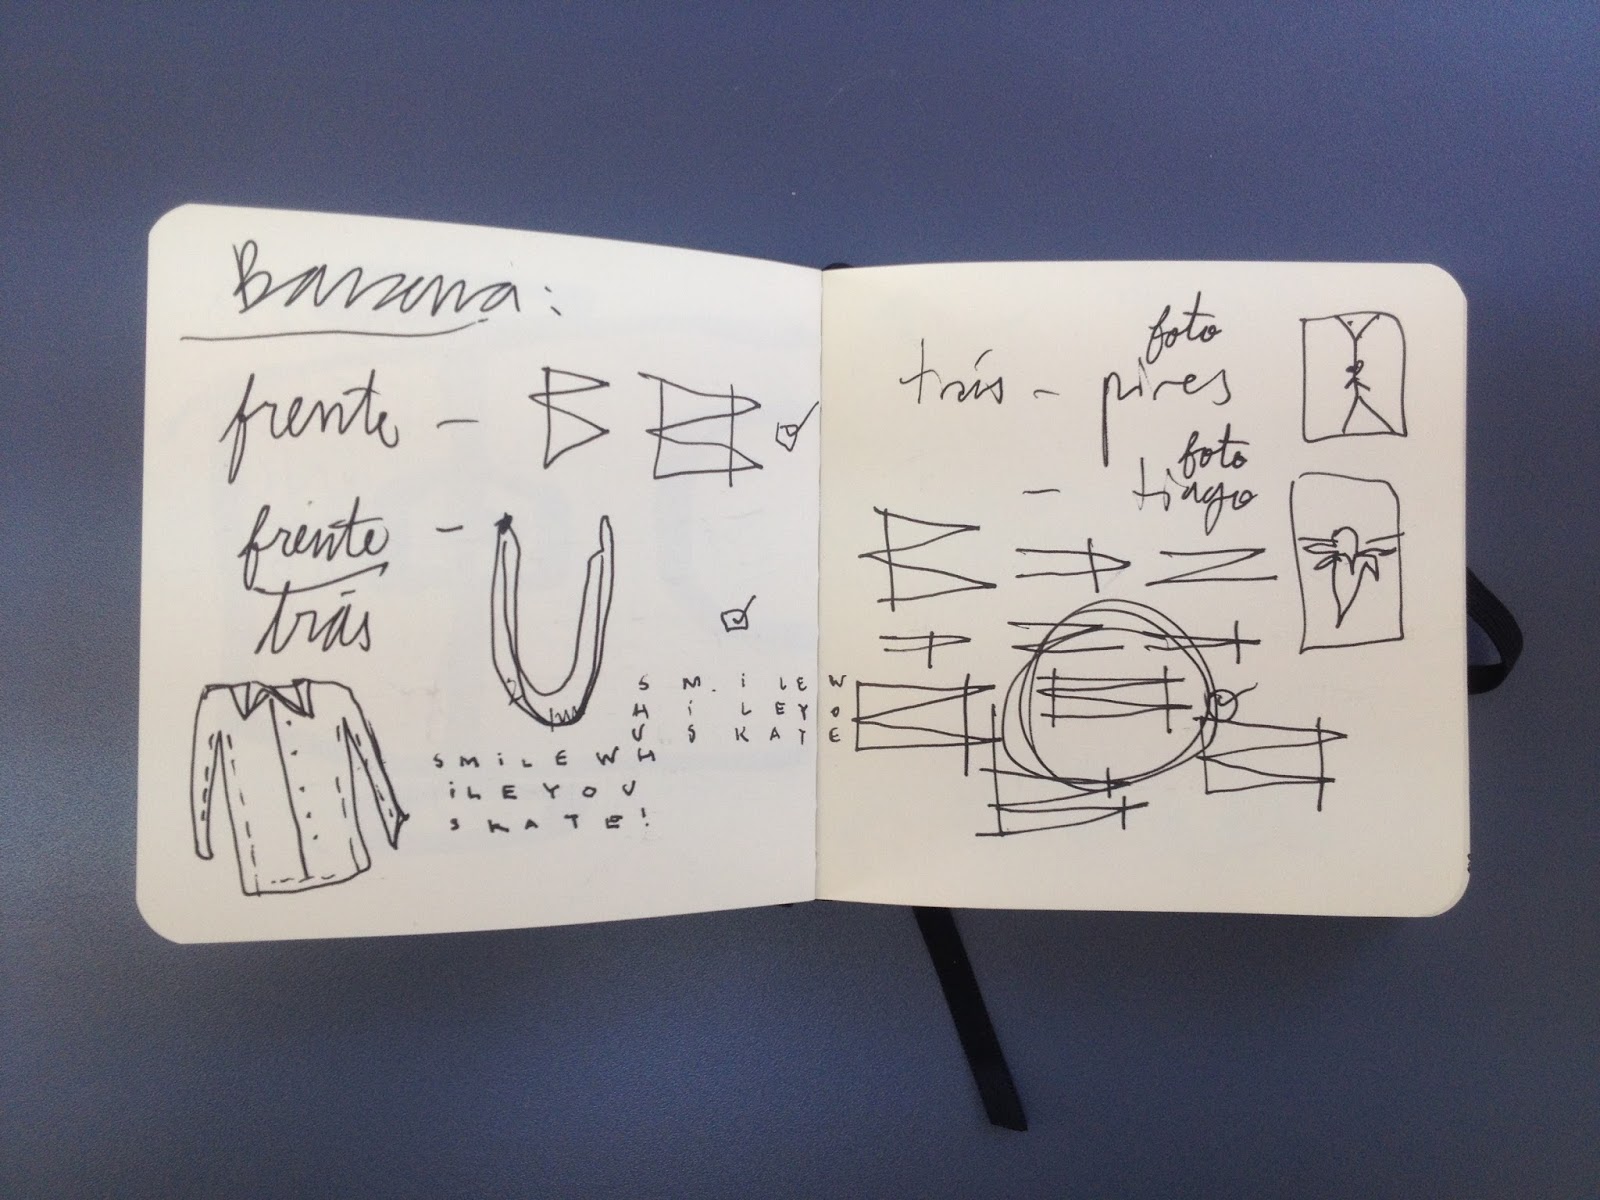 Banana:
frente –
frente –
trás
S M i L E W
H i L E Y O
U S K A T E
S M i L E W H
i L E Y O U
S K A T E !
foto
trás – pires
foto
– tiago